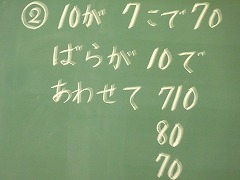 ② 10が 7こで 70
ばらが 10で
あわせて 710
80
70